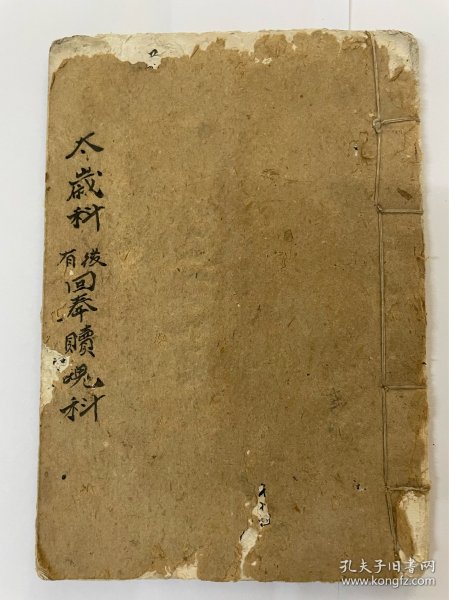 太歲科
後有
回奉贖魂科
孔夫子旧书网
www.kongfz.com